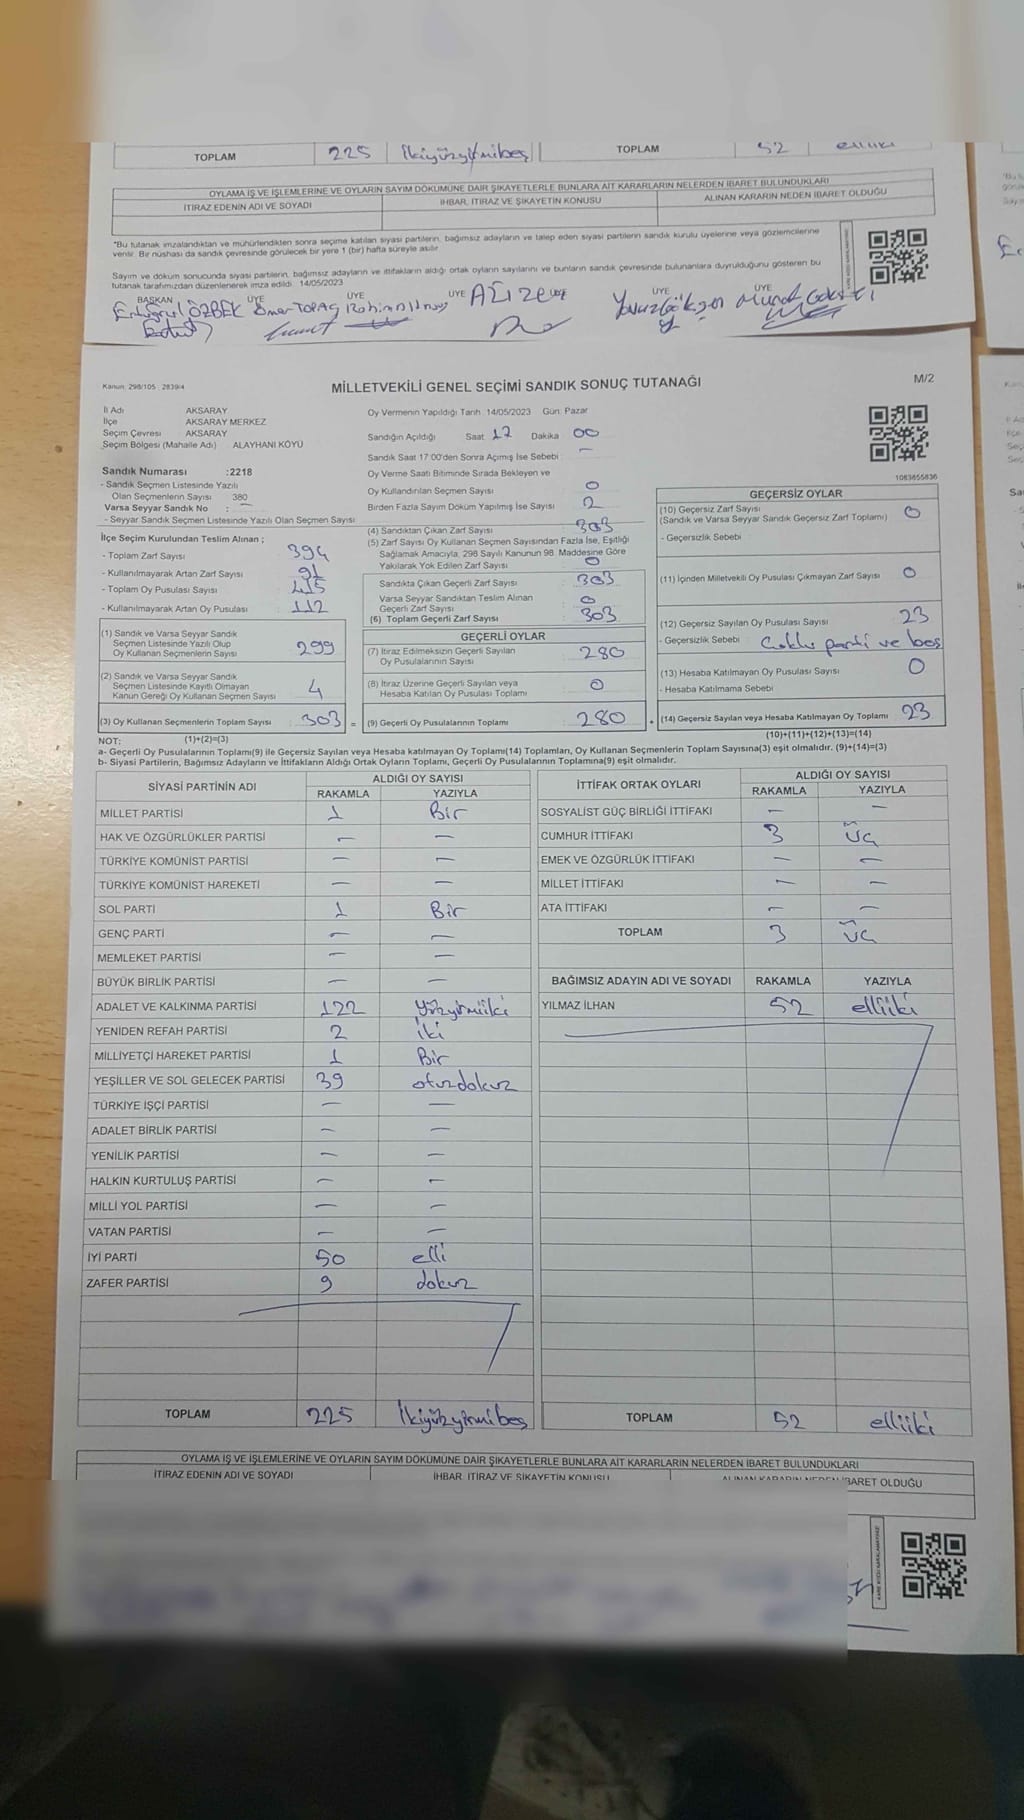 TOPLAM 225 ikiyüzyirmibeş TOPLAM 52 elliiki
OYLAMA İŞ VE İŞLEMLERİNE VE OYLARIN SAYIM DÖKÜMÜNE DAİR ŞİKAYETLERLE BUNLARA AİT KARARLARIN NELERDEN İBARET BULUNDUKLARI
İTİRAZ EDENİN ADI VE SOYADI İHBAR, İTİRAZ VE ŞİKAYETİN KONUSU ALINAN KARARIN NEDEN İBARET OLDUĞU
"Bu tutanak imzalandıktan ve mühürlendikten sonra seçime katılan siyasi partilerin, bağımsız adayların ve talep eden siyasi partilerin sandık kurulu üyelerine veya gözlemcilerine
verilir. Bir nüshası da sandık çevresinde görülecek bir yere 1 (bir) hafta süreyle asılır.
Sayım ve döküm sonucunda siyasi partilerin, bağımsız adayların ve ittifakların aldığı ortak oyların sayılarını ve bunların sandık çevresinde bulunanlara duyrulduğunu gösteren bu
tutanak tarafımızdan düzenlenerek imza edildi. 14/05/2023
BAŞKAN ÜYE ÜYE ÜYE ÜYE ÜYE ÜYE
Ertuğrul ÖZBEK Ömer TOPAÇ
Kanun: 298/105 : 2839/4 MİLLETVEKİLİ GENEL SEÇİMİ SANDIK SONUÇ TUTANAĞI M/2
İl Adı AKSARAY
İlçe AKSARAY MERKEZ
Seçim Çevresi AKSARAY
Seçim Bölgesi (Mahalle Adı) ALAYHANI KÖYÜ
Sandık Numarası :2218
- Sandık Seçmen Listesinde Yazılı
Olan Seçmenlerin Sayısı 380
Varsa Seyyar Sandık No : —
- Seyyar Sandık Seçmen Listesinde Yazılı Olan Seçmen Sayısı
İlçe Seçim Kurulundan Teslim Alınan ;
- Toplam Zarf Sayısı 394
- Kullanılmayarak Artan Zarf Sayısı 91
- Toplam Oy Pusulası Sayısı 415
- Kullanılmayarak Artan Oy Pusulası 112
(1) Sandık ve Varsa Seyyar Sandık
Seçmen Listesinde Yazılı Olup
Oy Kullanan Seçmenlerin Sayısı 299
(2) Sandık ve Varsa Seyyar Sandık
Seçmen Listesinde Kayıtlı Olmayan
Kanun Gereği Oy Kullanan Seçmen Sayısı 4
(3) Oy Kullanan Seçmenlerin Toplam Sayısı : 303 =
(1)+(2)=(3)
Oy Vermenin Yapıldığı Tarih :14/05/2023 Gün: Pazar
Sandığın Açıldığı Saat: 17 Dakika 00
Sandık Saat 17:00'den Sonra Açımış İse Sebebi : —
Oy Verme Saati Bitiminde Sırada Bekleyen ve
Oy Kullandırılan Seçmen Sayısı 0
Birden Fazla Sayım Döküm Yapılmış İse Sayısı 2
(4) Sandıktan Çıkan Zarf Sayısı 303
(5) Zarf Sayısı Oy Kullanan Seçmen Sayısından Fazla İse, Eşitliği
Sağlamak Amacıyla, 298 Sayılı Kanunun 98. Maddesine Göre
Yakılarak Yok Edilen Zarf Sayısı 0
Sandıkta Çıkan Geçerli Zarf Sayısı : 303
Varsa Seyyar Sandıktan Teslim Alınan
Geçerli Zarf Sayısı : 0
(6) Toplam Geçerli Zarf Sayısı : 303
GEÇERLİ OYLAR
(7) İtiraz Edilmeksizin Geçerli Sayılan
Oy Pusulalarının Sayısı : 280
(8) İtiraz Üzerine Geçerli Sayılan veya
Hesaba Katılan Oy Pusulası Toplamı : 0
(9) Geçerli Oy Pusulalarının Toplamı : 280 +
1083655836
GEÇERSİZ OYLAR
(10) Geçersiz Zarf Sayısı
(Sandık ve Varsa Seyyar Sandık Geçersiz Zarf Toplamı) : 0
- Geçersizlik Sebebi :
(11) İçinden Milletvekili Oy Pusulası Çıkmayan Zarf Sayısı : 0
(12) Geçersiz Sayılan Oy Pusulası Sayısı : 23
- Geçersizlik Sebebi : Çoklu parti ve boş
(13) Hesaba Katılmayan Oy Pusulası Sayısı : 0
- Hesaba Katılmama Sebebi :
(14) Geçersiz Sayılan veya Hesaba Katılmayan Oy Toplamı : 23
(10)+(11)+(12)+(13)=(14)
NOT:
a- Geçerli Oy Pusulalarının Toplamı(9) ile Geçersiz Sayılan veya Hesaba katılmayan Oy Toplamı(14) Toplamları, Oy Kullanan Seçmenlerin Toplam Sayısına(3) eşit olmalıdır. (9)+(14)=(3)
b- Siyasi Partilerin, Bağımsız Adayların ve İttifakların Aldığı Ortak Oyların Toplamı, Geçerli Oy Pusulalarının Toplamına(9) eşit olmalıdır.
SİYASİ PARTİNİN ADI ALDIĞI OY SAYISI
RAKAMLA YAZIYLA
MİLLET PARTİSİ 1 Bir
HAK VE ÖZGÜRLÜKLER PARTİSİ — —
TÜRKİYE KOMÜNİST PARTİSİ — —
TÜRKİYE KOMÜNİST HAREKETİ — —
SOL PARTİ 1 Bir
GENÇ PARTİ — —
MEMLEKET PARTİSİ — —
BÜYÜK BİRLİK PARTİSİ — —
ADALET VE KALKINMA PARTİSİ 122 yüzyirmiiki
YENİDEN REFAH PARTİSİ 2 iki
MİLLİYETÇİ HAREKET PARTİSİ 1 Bir
YEŞİLLER VE SOL GELECEK PARTİSİ 39 otuzdokuz
TÜRKİYE İŞÇİ PARTİSİ — —
ADALET BİRLİK PARTİSİ — —
YENİLİK PARTİSİ — —
HALKIN KURTULUŞ PARTİSİ — —
MİLLİ YOL PARTİSİ — —
VATAN PARTİSİ — —
İYİ PARTİ 50 elli
ZAFER PARTİSİ 9 dokuz
TOPLAM 225 ikiyüzyirmibeş
İTTİFAK ORTAK OYLARI ALDIĞI OY SAYISI
RAKAMLA YAZIYLA
SOSYALİST GÜÇ BİRLİĞİ İTTİFAKI — —
CUMHUR İTTİFAKI 3 üç
EMEK VE ÖZGÜRLÜK İTTİFAKI — —
MİLLET İTTİFAKI — —
ATA İTTİFAKI — —
TOPLAM 3 üç
BAĞIMSIZ ADAYIN ADI VE SOYADI RAKAMLA YAZIYLA
YILMAZ İLHAN 52 elliiki
TOPLAM 52 elliiki
OYLAMA İŞ VE İŞLEMLERİNE VE OYLARIN SAYIM DÖKÜMÜNE DAİR ŞİKAYETLERLE BUNLARA AİT KARARLARIN NELERDEN İBARET BULUNDUKLARI
İTİRAZ EDENİN ADI VE SOYADI İHBAR, İTİRAZ VE ŞİKAYETİN KONUSU ALINAN KARARIN NEDEN İBARET OLDUĞU